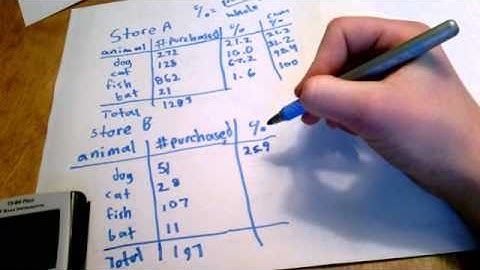 % =
whole
Store A
animal # purchased % cum %
dog 272 21.2 21.2
cat 128 10.0 31.2
fish 862 67.2 98.4
bat 21 1.6 100
Total 1283
Store B
animal # purchased %
dog 51 25.9
cat 28
fish 107
bat 11
Total 197
TI-84 Plus
TEXAS INSTRUMENTS